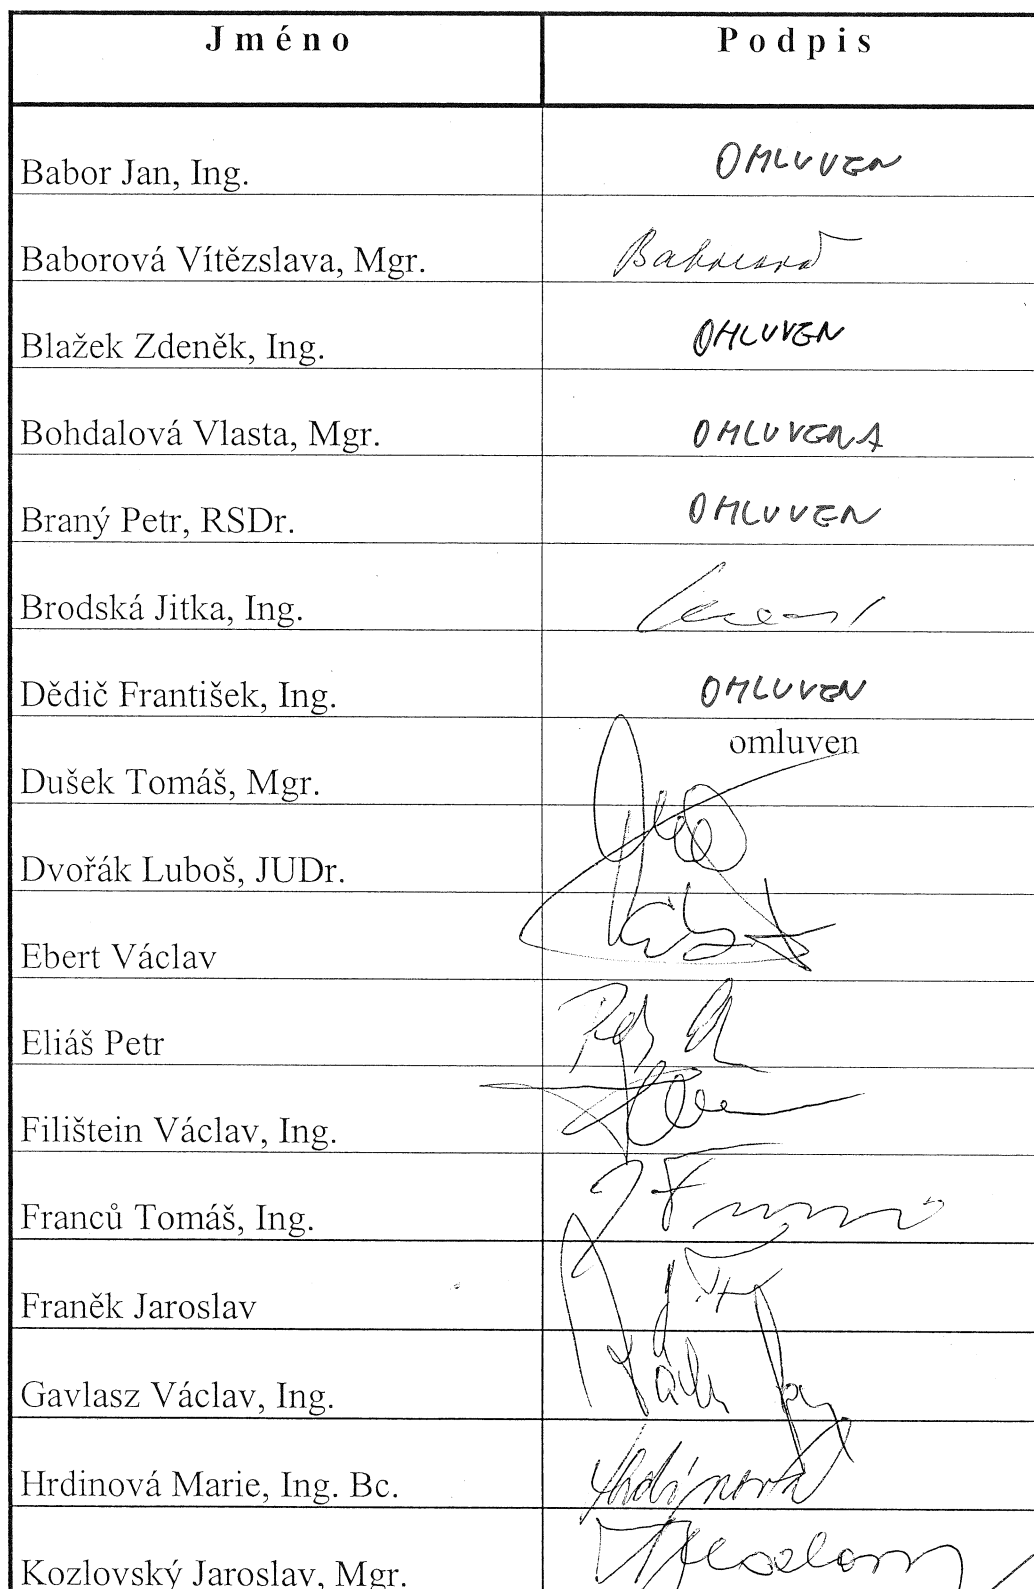 Jméno Podpis
Babor Jan, Ing. OMLUVEN
Baborová Vítězslava, Mgr. Baborová
Blažek Zdeněk, Ing. OMLUVEN
Bohdalová Vlasta, Mgr. OMLUVENA
Braný Petr, RSDr. OMLUVEN
Brodská Jitka, Ing.
Dědič František, Ing. OMLUVEN
omluven
Dušek Tomáš, Mgr.
Dvořák Luboš, JUDr.
Ebert Václav
Eliáš Petr
Filištein Václav, Ing.
Franců Tomáš, Ing.
Franěk Jaroslav
Gavlasz Václav, Ing.
Hrdinová Marie, Ing. Bc. Hrdinová
Kozlovský Jaroslav, Mgr.